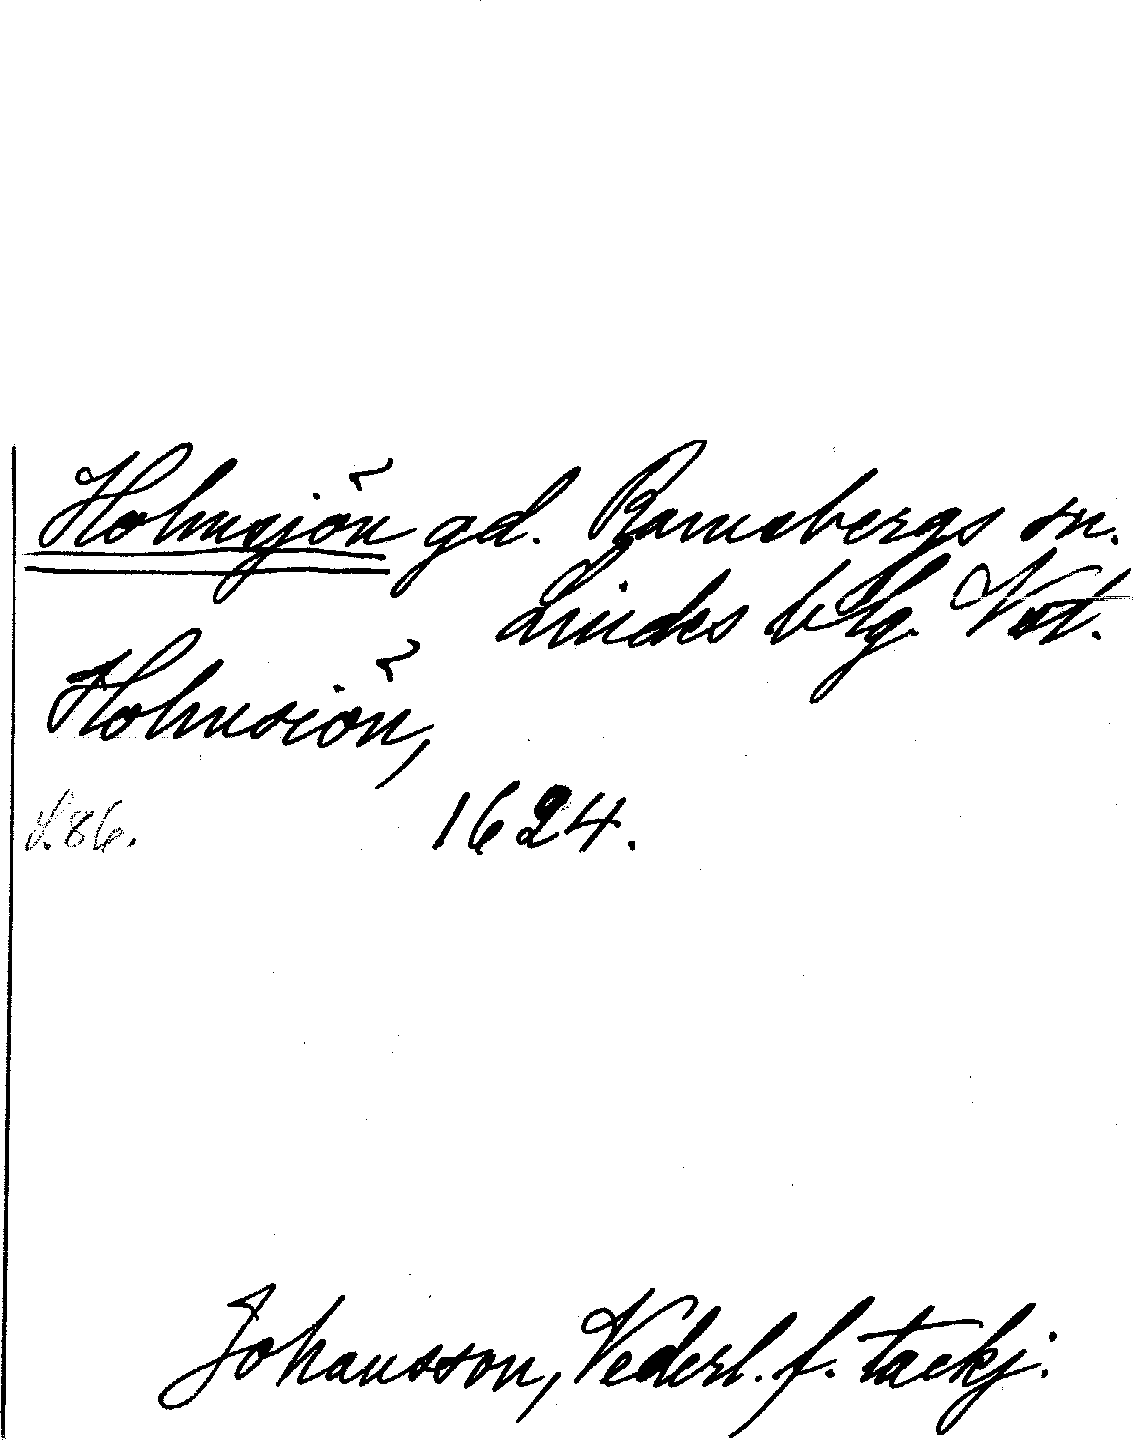 Holmsjön gd. Ramsbergs sn.
Lindes blg. Vstm.
Holmsiön,
1624.
s. 86.
Johansson, Vederl. f. tackj.